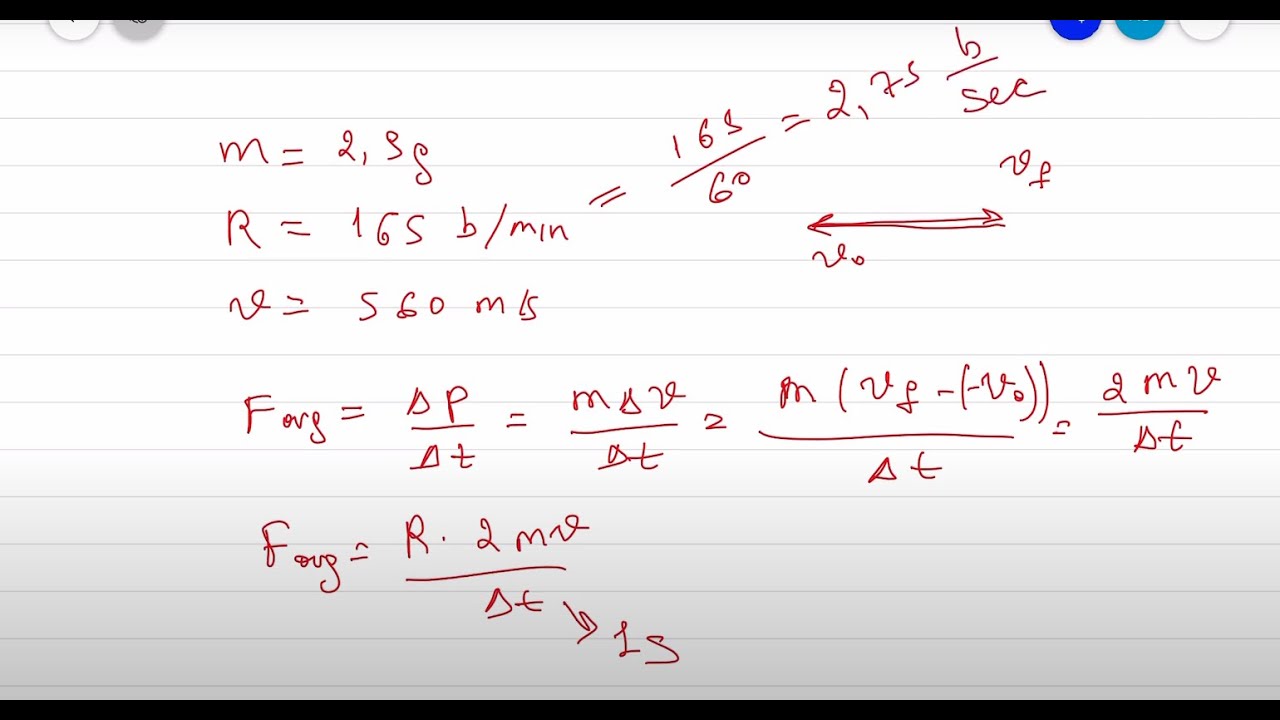 m = 2,3g
R = 165 b/min = 165/60 = 2,75 b/sec
v = 560 m/s
v_f
v_0
F avg = ΔP/Δt = mΔv/Δt = m(v_f - (-v_0))/Δt = 2mv/Δt
F avg = R · 2mv/Δt
1s